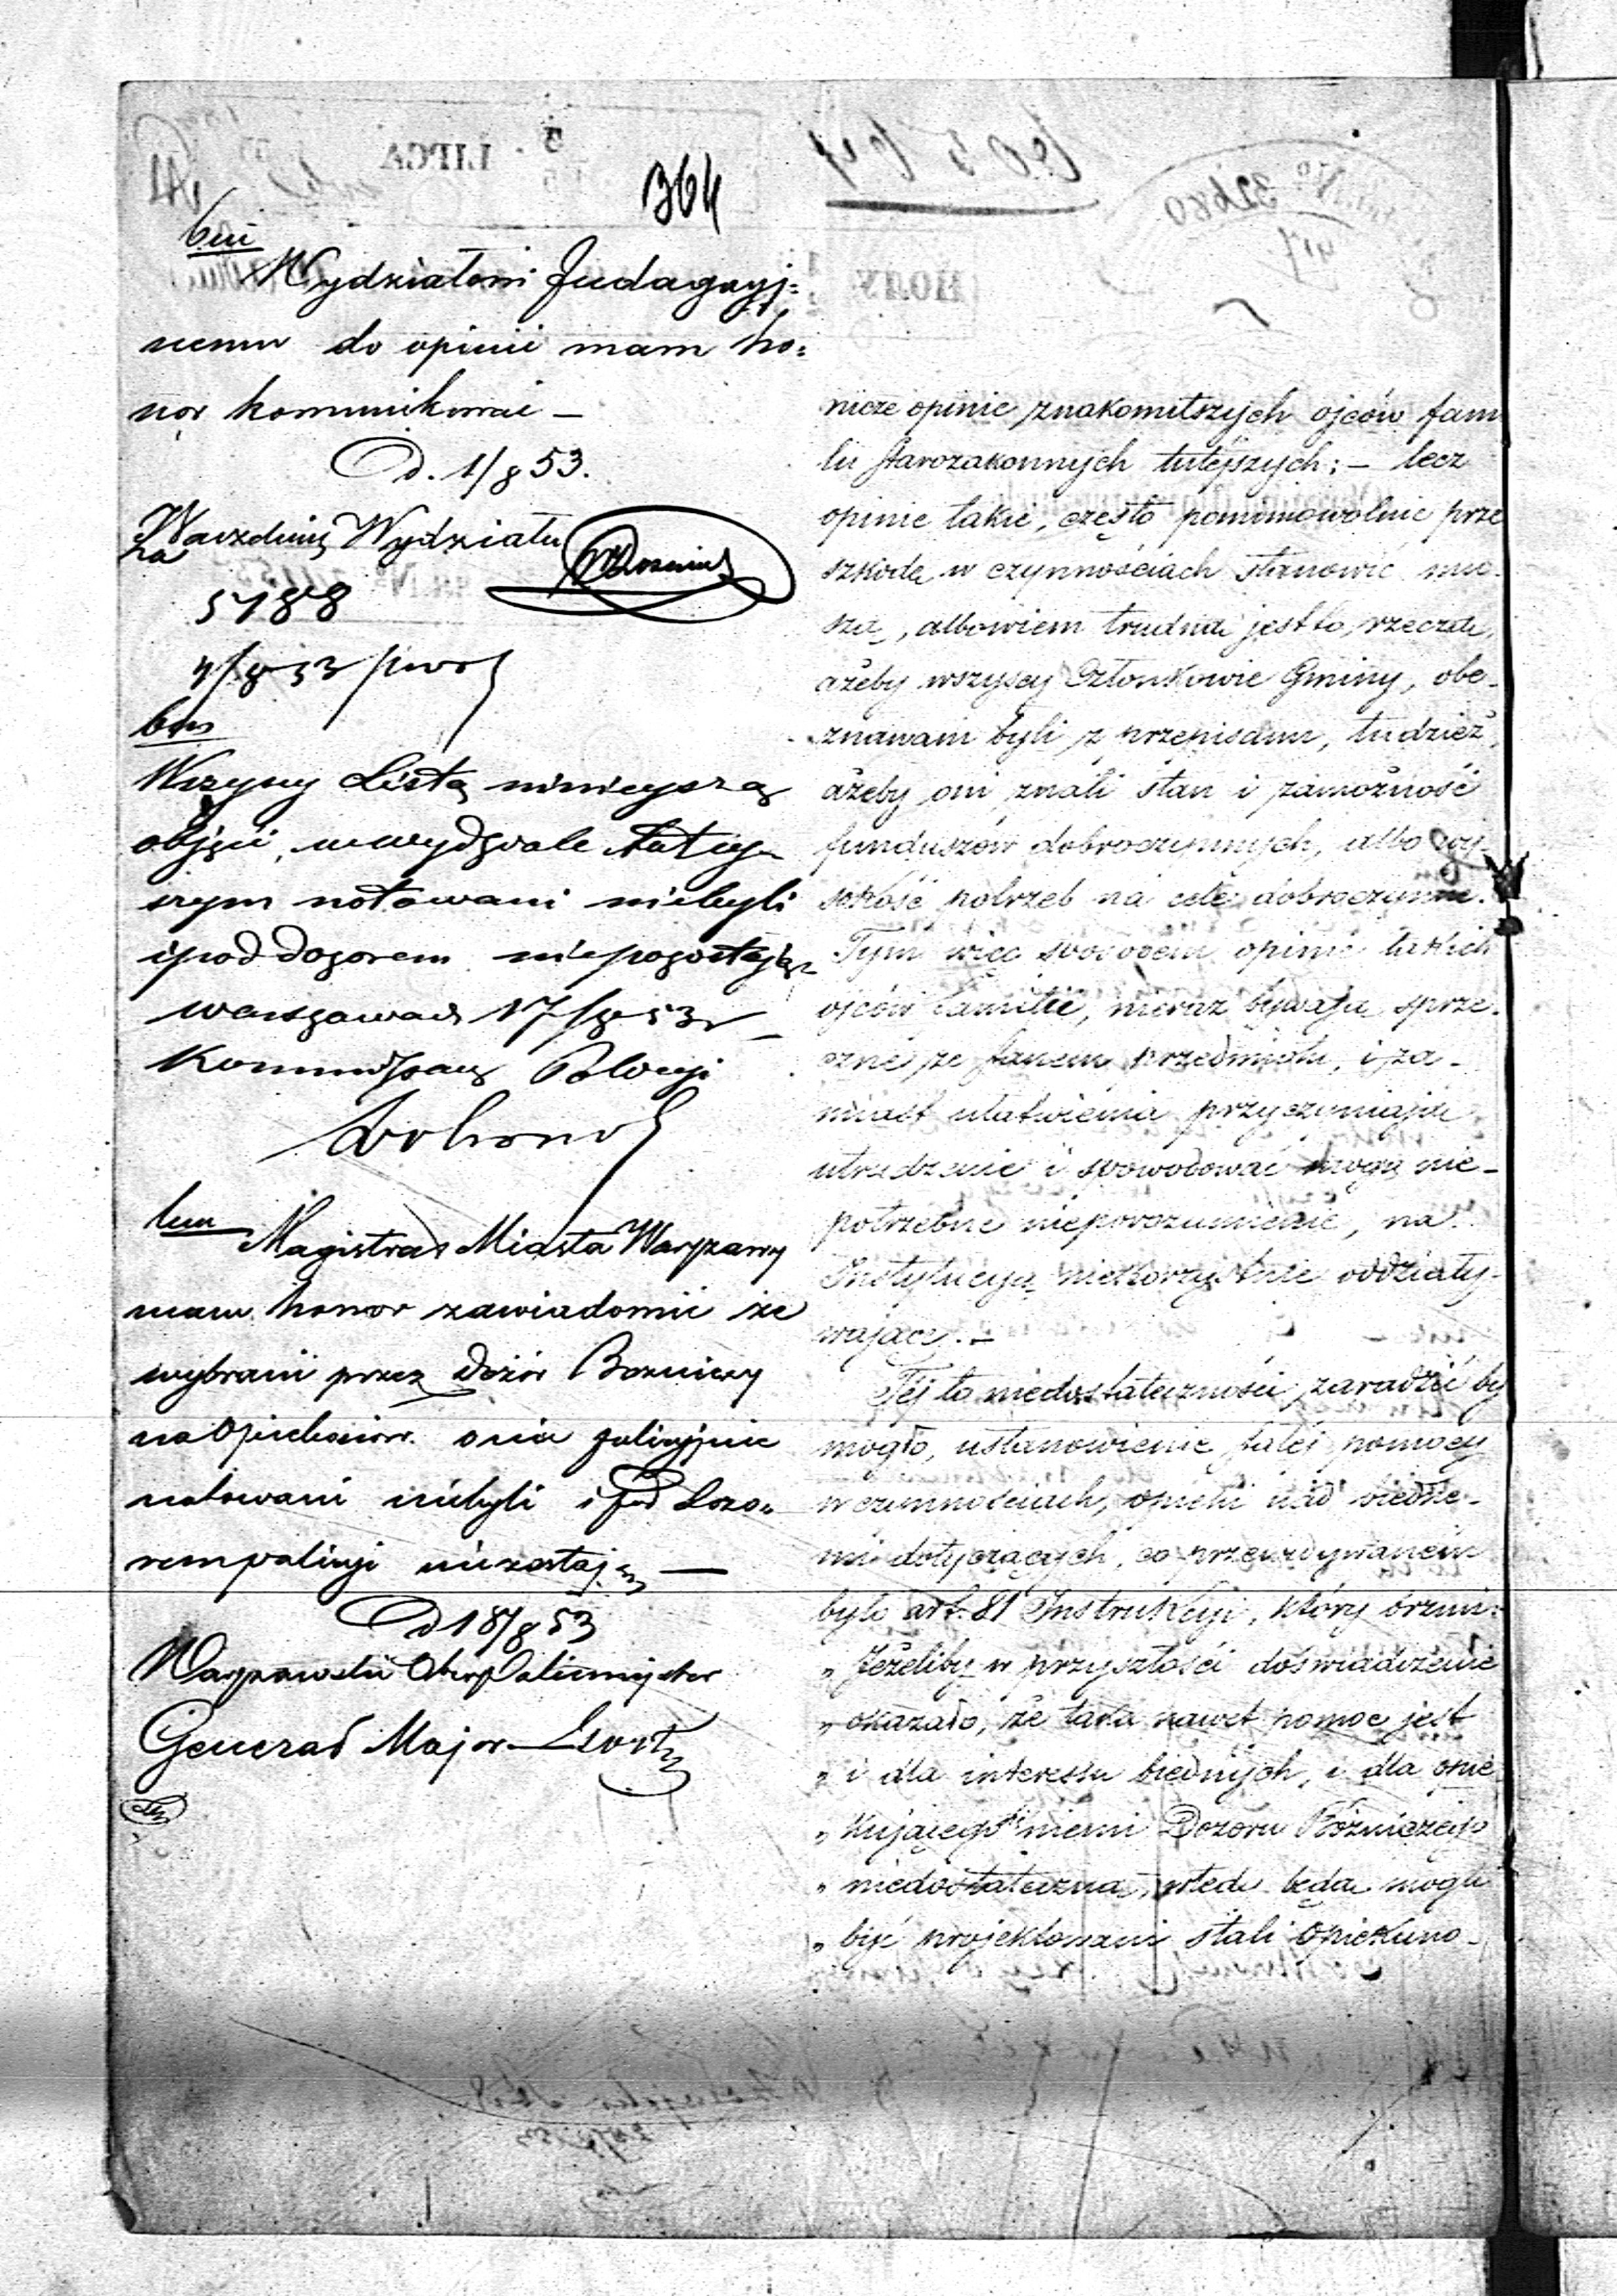 364
Wydziałowi Indagacyj=
nemu do opinii mam ho=
nor kommunikować —
D. 1/8 53.
Wydziału
5188
4/8 53
Wszyscy Listą niniejszą
objęci, w wydziale tutej=
szym notowani niebyli
i pod dozorem niepozostają
Warszawa d 17/8 53 r
Kommissarz Policyi
Magistrat Miasta Warszawy
mam honor zawiadomić że
wybrani przez Dozór Bozniczy
na Opiekunów policyjnie
notowani niebyli i pod dozo=
rem policyi niezostają —
D 18/8 53
Warszawski Ober Policmajster
Generał Major
nicze opinie znakomitszych ojców fami
lii starozakonnych tutejszych; — lecz
opinie takie, często pomimowolnie prze
szkodę w czynnościach stanowić mu-
szą, albowiem trudną jest to rzeczą,
ażeby wszyscy Członkowie Gminy, obe-
znawani byli z przepisami, tudzież,
ażeby oni znali stan i zamożność
funduszów dobroczynnych, albo wy-
sokość potrzeb na cele dobroczynne.
Tym więc sposobem opinie takich
ojców familii, nieraz bywają sprze-
czne ze stanem przedmiotu, i za-
miast ułatwienia przyczyniają
utrudzenie i spowodować mogą nie-
potrzebne nieporozumienie, na
Instytucyą niekorzystnie oddziały-
wające. —
Tej to niedostateczności zaradzić by
mogło, ustanowienie stałej pomocy
w czynnościach, opieki nad biedne-
mi dotyczących, co przewidywanem
było art. 81 Instrukcyi, który brzmi:
„ Jeżeliby w przyszłości doświadczenie
„ okazało, że taka nawet pomoc jest
„ i dla interessu biednych, i dla opie
„ kującego niemi Dozoru Bóżniczego
„ niedostateczną, wtedy będą mogli
„ być projektowani stali Opiekuno-